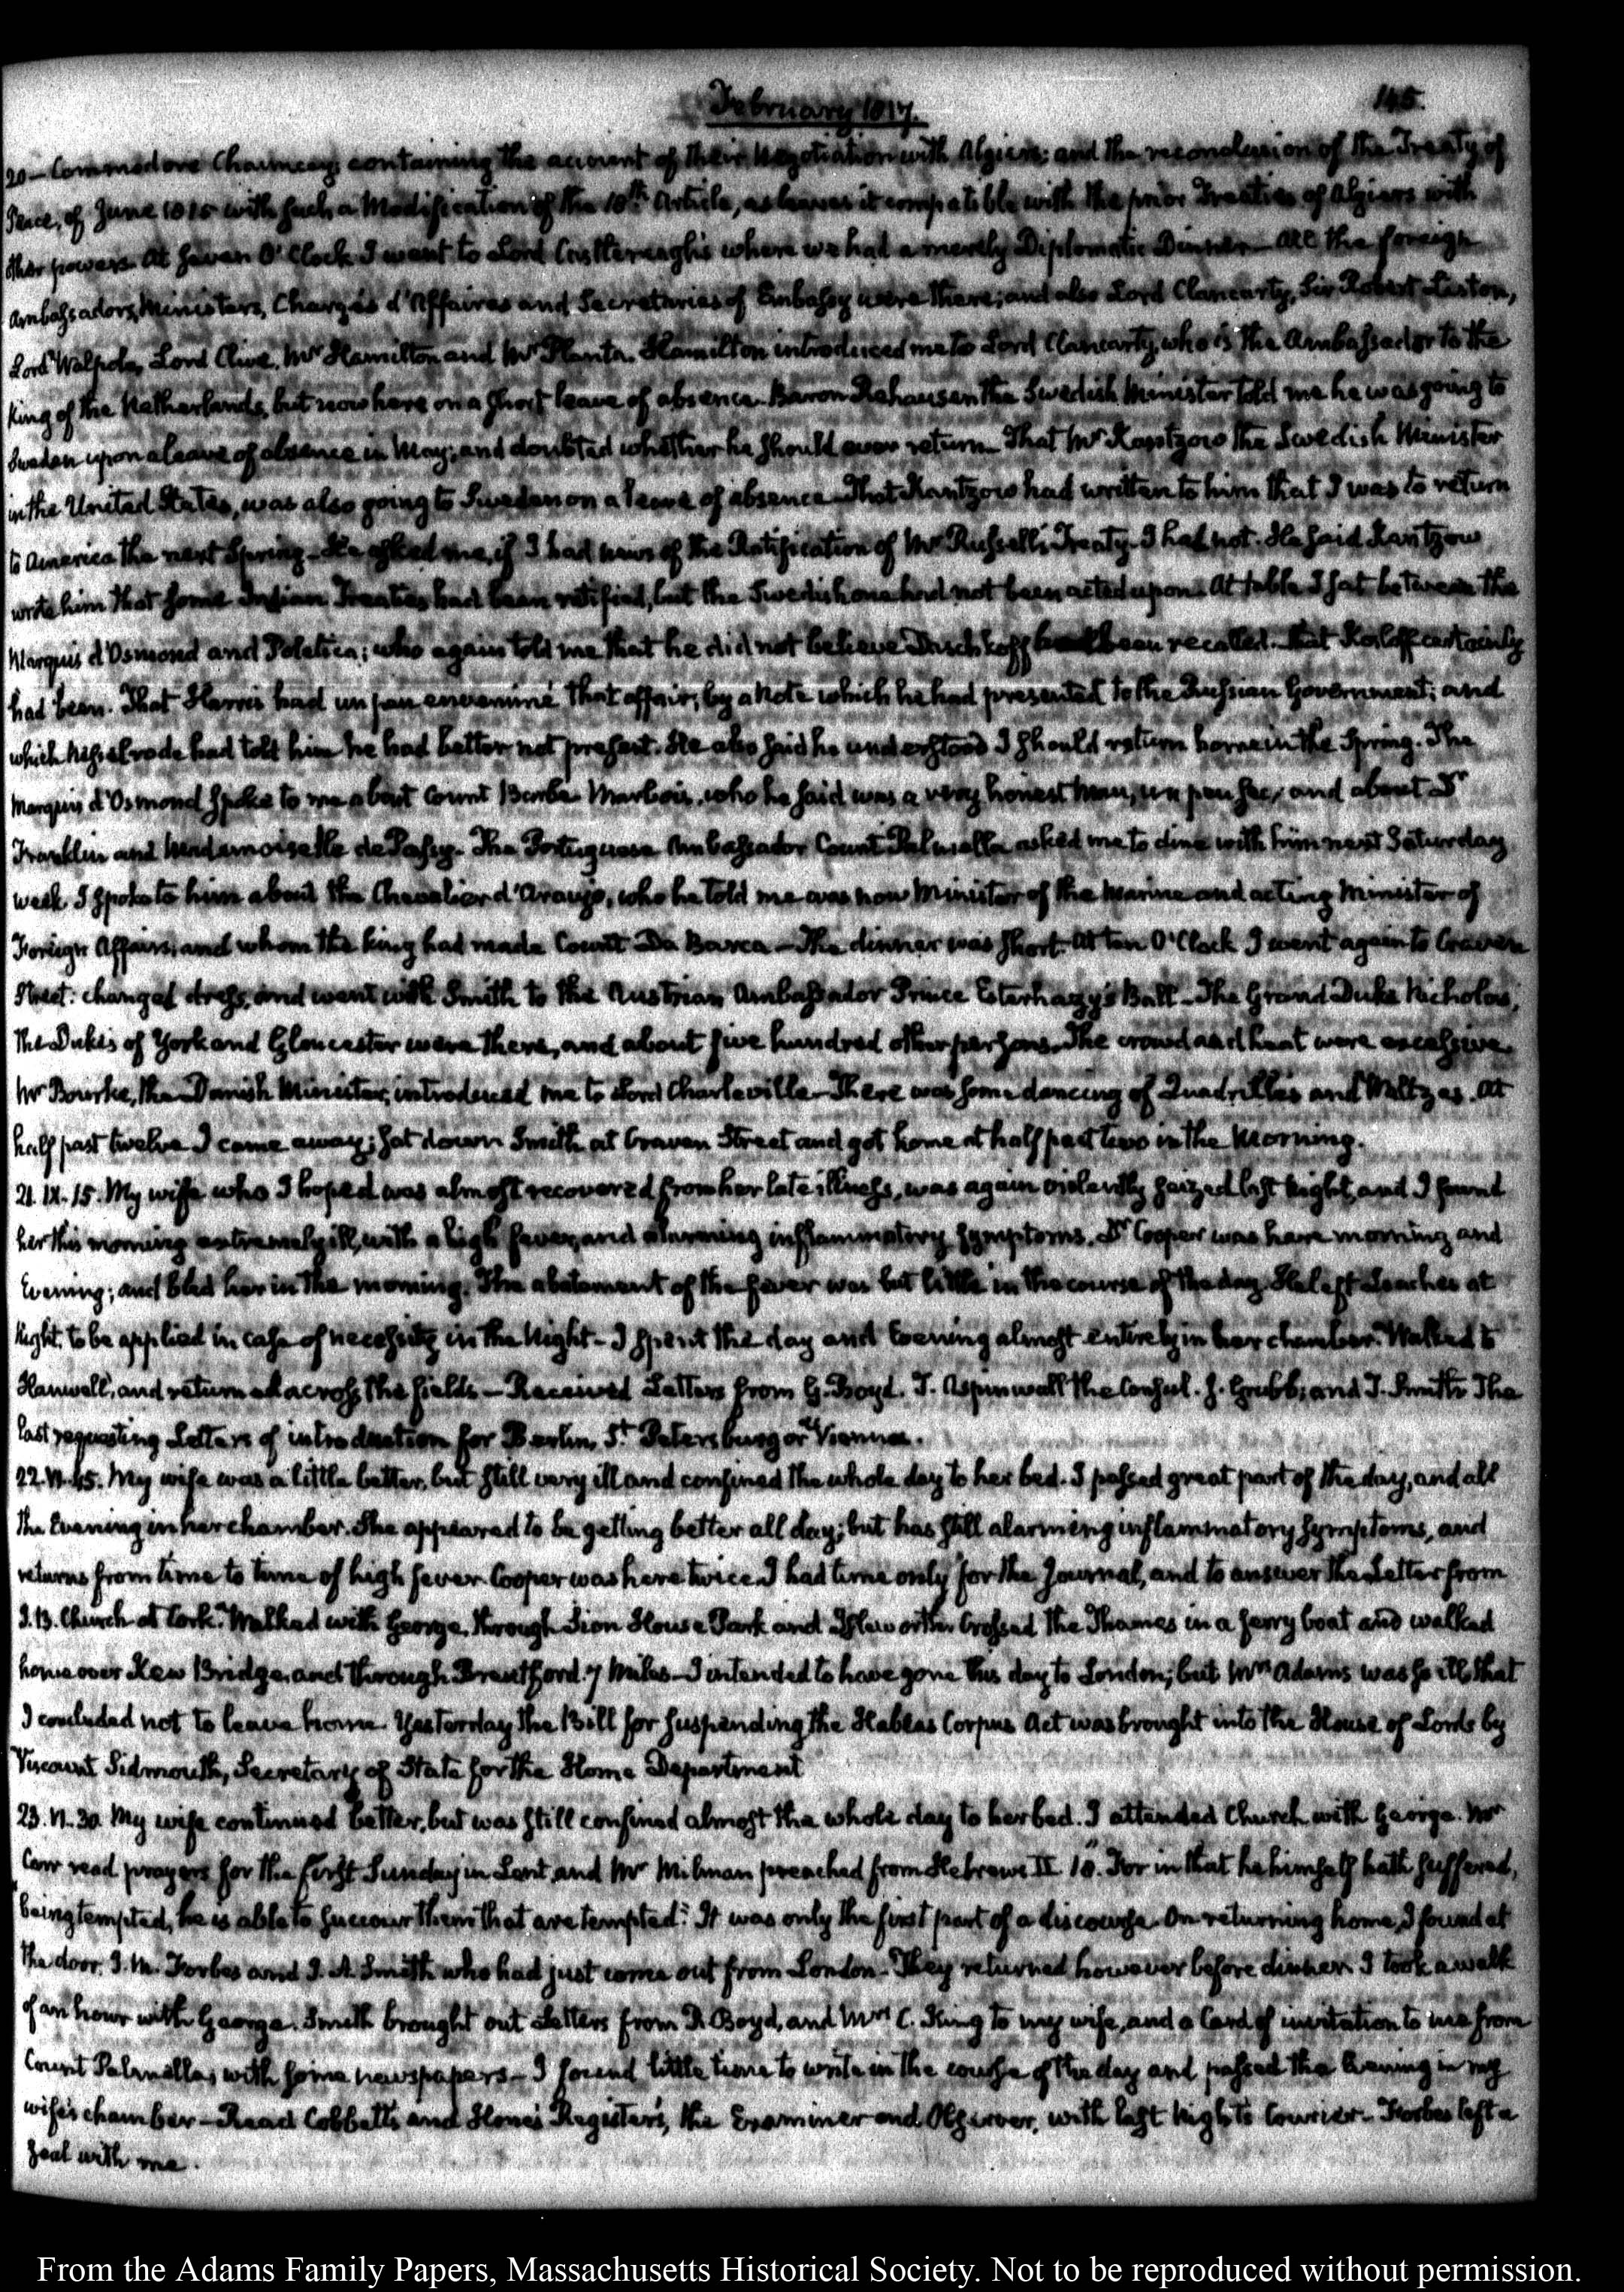 February 1817. 145.
20 — Commodore Chauncey; containing the account of their Negotiation with Algiers; and the reconclusion of the Treaty of
Peace, of June 1815 with such a Modification of the 18th. Article, as leaves it compatible with the prior Treaties of Algiers with
other powers. At seven O'Clock I went to Lord Castlereagh's where we had a merely Diplomatic Dinner — All the foreign
Ambassadors, Ministers, Chargés d'Affaires and Secretaries of Embassy were there; and also Lord Clancarty, Sir Robert Liston,
Lord Walpole, Lord Clive, Mr Hamilton and Mr Planta. Hamilton introduced me to Lord Clancarty, who is the Ambassador to the
King of the Netherlands, but now here on a short leave of absence. Baron Rehausen the Swedish Minister told me he was going to
Sweden upon a leave of absence in May; and doubted whether he should ever return — That Mr Kantzow the Swedish Minister
in the United States, was also going to Sweden on a leave of absence — That Kantzow had written to him that I was to return
to America the next Spring — He asked me, if I had news of the Ratification of Mr Russell's Treaty — I had not. He said Kantzow
wrote him that some Indian Treaties had been ratified, but the Swedish one had not been acted upon. At table I sat between the
Marquis d'Osmond and Poletica; who again told me that he did not believe Daschkoff had been recalled. That Kosloff certainly
had been. That Harris had un peu envenimé that affair, by a Note which he had presented to the Russian Government; and
which Nesselrode had told him he had better not present. He also said he understood I should return home in the Spring. The
Marquis d'Osmond spoke to me about Count Barbé Marbois, who he said was a very honest man, un peu sec, and about Dr
Franklin and Mademoiselle de Passy. The Portuguese Ambassador Count Palmella asked me to dine with him next Saturday
week. I spoke to him about the Chevalier d'Araujo, who he told me was now Minister of the Marine and acting Minister of
Foreign Affairs, and whom the king had made Count Da Barca — The dinner was short. At ten O'Clock I went again to Craven
Street: changed dress, and went with Smith to the Austrian Ambassador Prince Esterhazy's Ball — The Grand Duke Nicholas,
the Dukes of York and Gloucester were there, and about five hundred other persons. The crowd and heat were excessive.
Mr Bourke, the Danish Minister, introduced me to Lord Charleville — There was some dancing of Quadrilles and Waltzes. At
half past twelve I came away; sat down Smith at Craven Street and got home at half past two in the Morning.
21. IX. 15. My wife who I hoped was almost recovered from her late illness, was again violently seized last Night, and I found
her this morning extremely ill, with a high fever, and alarming inflammatory symptoms. Dr Cooper was here morning and
Evening; and bled her in the morning. The abatement of the fever was but little in the course of the day. He left Leaches at
Night, to be applied in case of necessity in the Night — I spent the day and Evening almost entirely in her chamber. Walked to
Hanwell, and returned across the fields — Received Letters from G. Boyd. T. Aspinwall the Consul. J. Grubb; and J. Smith The
last requesting Letters of introduction for Berlin, St. Petersburg or Vienna.
22. VI. 45. My wife was a little better, but still very ill and confined the whole day to her bed. I passed great part of the day, and all
the Evening in her chamber. She appeared to be getting better all day; but has still alarming inflammatory symptoms, and
returns from time to time of high fever. Cooper was here twice. I had time only for the Journal, and to answer the Letter from
J. B. Church at Cork. Walked with George, through Sion House Park and Isleworth. Crossed the Thames in a ferry boat and walked
home over Kew Bridge, and through Brentford. 7 Miles — I intended to have gone this day to London; but Mrs Adams was so ill that
I concluded not to leave home. Yesterday the Bill for suspending the Habeas Corpus Act was brought into the House of Lords by
Viscount Sidmouth, Secretary of State for the Home Department
23. VI. 30. My wife continued better, but was still confined almost the whole day to her bed. I attended Church with George. Mr
Carr read prayers for the first Sunday in Lent, and Mr Milman preached from Hebrews II. 18. "For in that he himself hath suffered,
being tempted, he is able to succour them that are tempted." It was only the first part of a discourse. On returning home, I found at
the door, J. M. Forbes and J. A. Smith who had just come out from London — They returned however before dinner. I took a walk
of an hour with George. Smith brought out Letters from R. Boyd, and Mrs C. King to my wife, and a Card of invitation to me from
Count Palmella, with some newspapers — I found little time to write in the course of the day and passed the Evening in my
wife's chamber — Read Cobbett's and Hone's Registers, the Examiner and Observer, with last Night's Courier — Forbes left a
seal with me.
From the Adams Family Papers, Massachusetts Historical Society. Not to be reproduced without permission.